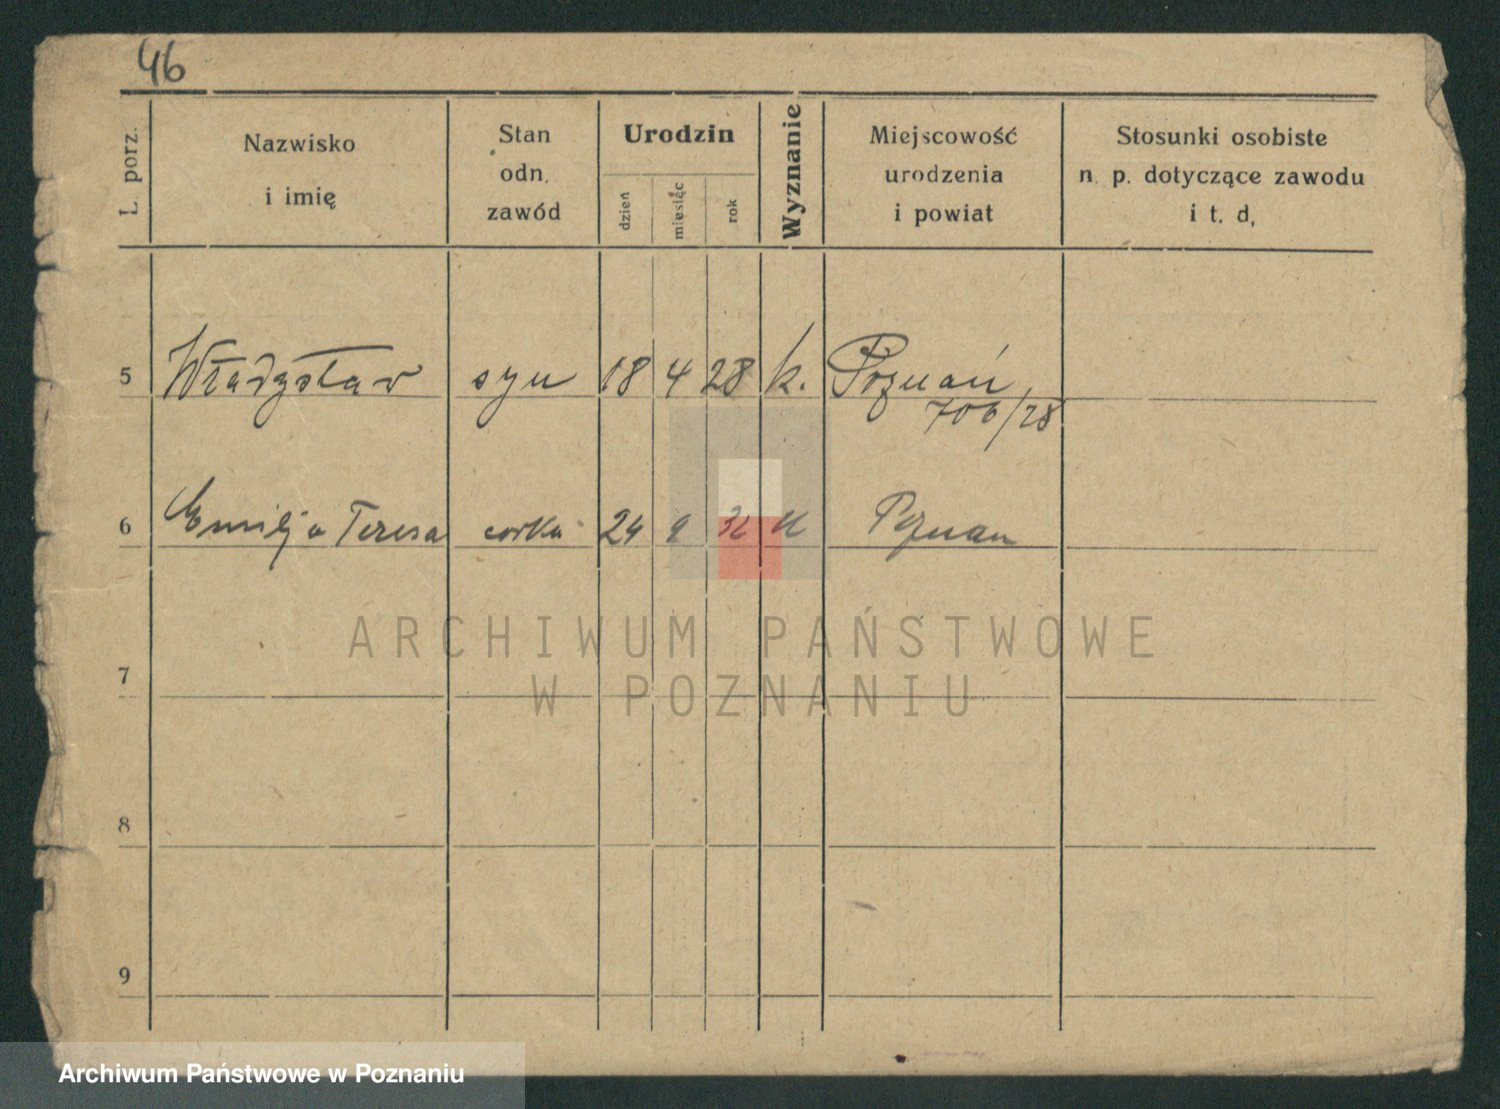 46
L. porz.
Nazwisko
i imię
Stan
odn.
zawód
Urodzin
dzień
miesiąc
rok
Wyznanie
Miejscowość
urodzenia
i powiat
Stosunki osobiste
n. p. dotyczące zawodu
i t. d,
5 Władysław syn 18 4 28 k. Poznań
706/28
6 Emilja Teresa corka 24 9 Poznan
ARCHIWUM PAŃSTWOWE
W POZNANIU
7
8
9
Archiwum Państwowe w Poznaniu